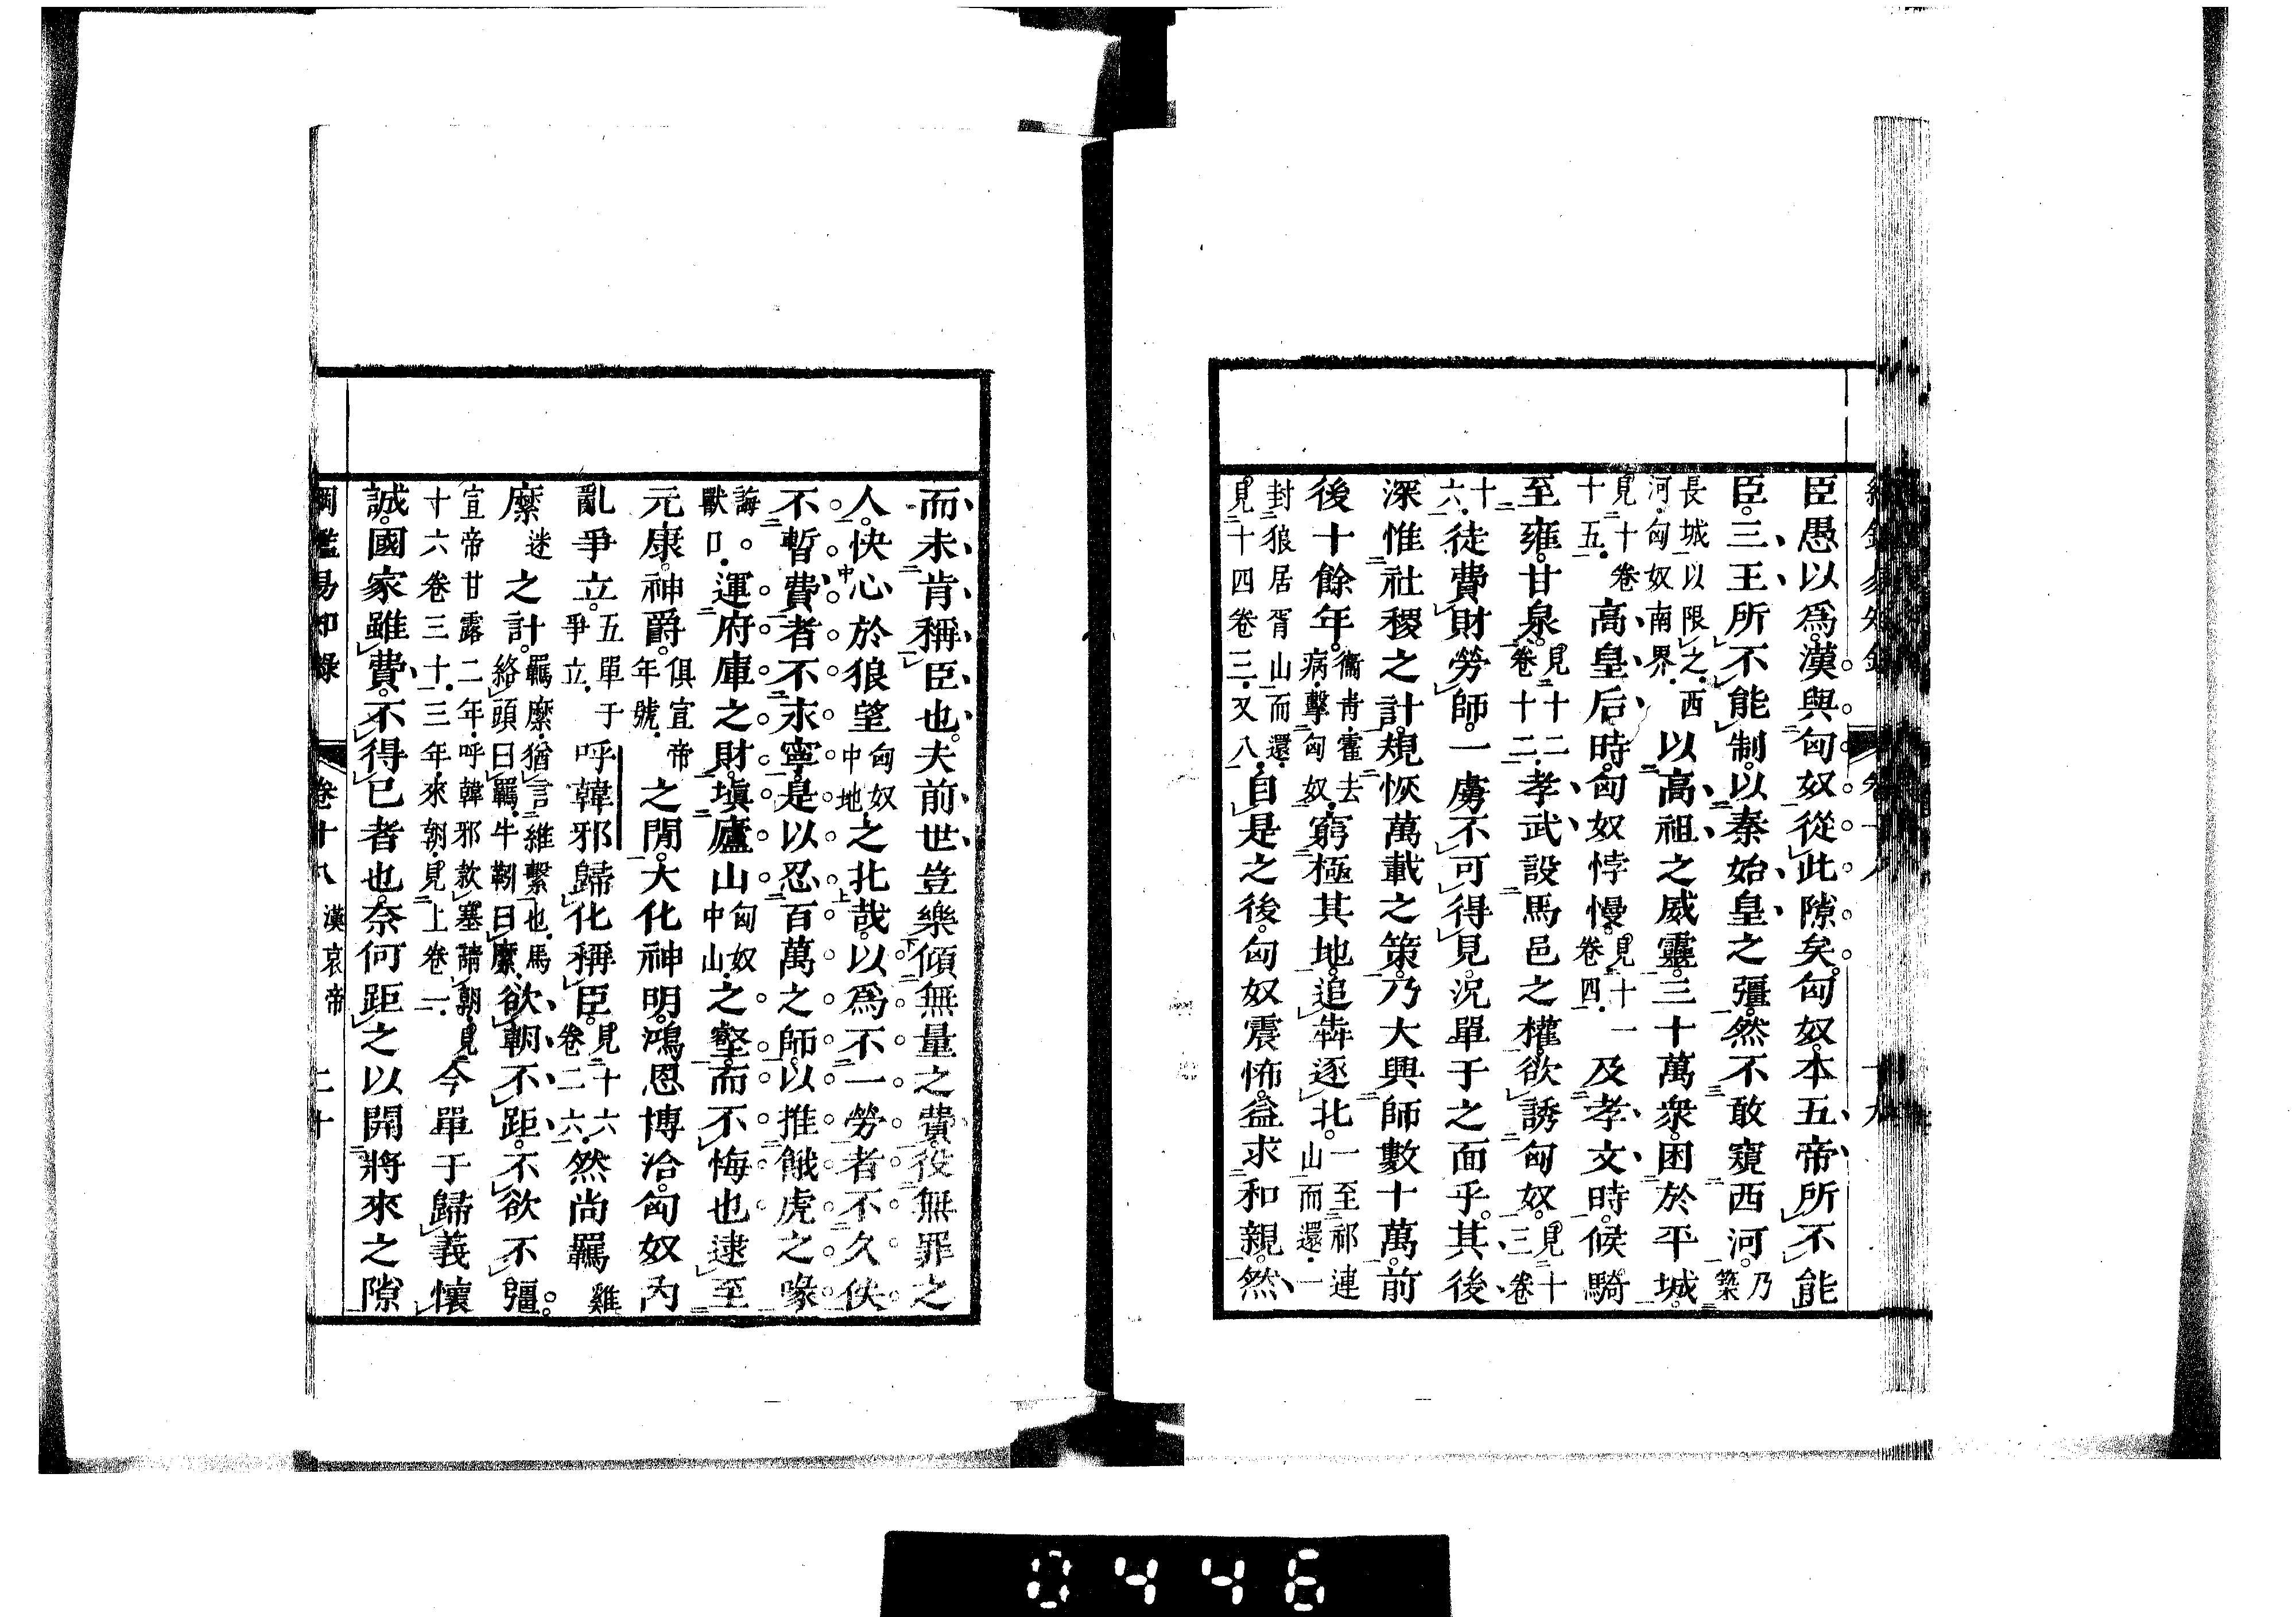 臣愚以爲。漢與匈奴從此隙矣。匈奴。本五帝所不能
臣。三王所不能制。以秦始皇之彊。然不敢窺西河。乃築
長城以限之。西河。匈奴南界。以高祖之威靈。三十萬衆。困於平城。
見十卷十五。高皇后時。匈奴悖慢。見十一卷四。及孝文時。候騎
至雍。甘泉。見十二卷十二。孝武設馬邑之權。欲誘匈奴。見十三卷
十六。徒費財勞師。一虜不可得見。況單于之面乎。其後
深惟社稷之計。規恢萬載之策。乃大興師數十萬。前
後十餘年。衞青。霍去病。擊匈奴。窮極其地。追犇逐北。一至祁連山而還。一
封狼居胥山而還。見十四卷三。又八。自是之後。匈奴震怖。益求和親。然
而未肯稱臣也。夫前世豈樂傾無量之費。役無罪之
人。快心於狼望匈奴中地。之北哉。以爲不一勞者不久佚。
不暫費者不求寧。是以忍百萬之師。以推餓虎之喙
誨。獸口。運府庫之財。塡廬山匈奴中山。之壑。而不悔也。逮至
元康。神爵。俱宣帝年號。之閒。大化神明。鴻恩博洽。匈奴內
亂爭立。五單于爭立。呼韓邪歸化稱臣。見十六卷二六。然尚羈雞
縻迷之計。羈縻。猶言維繫也。馬絡頭曰羈。牛靷曰縻。欲朝不距。不欲不彊。
宣帝甘露二年。呼韓邪款塞請朝。見十六卷三十。三年。來朝。見上卷一。今單于歸義懷
誠。國家雖費。不得已者也。奈何距之以開將來之隙
綱鑑易知錄 卷十八 漢哀帝 二十